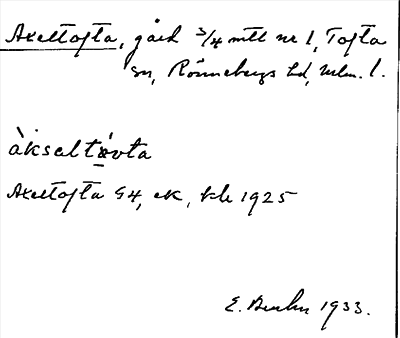 Axeltofta, gård 3/4 mtl nr 1, Tofta
sn, Rönnebergs hd, Mlm. l.
àkseltávta
Axeltofta G4, ek, kb 1925
E. 1933.